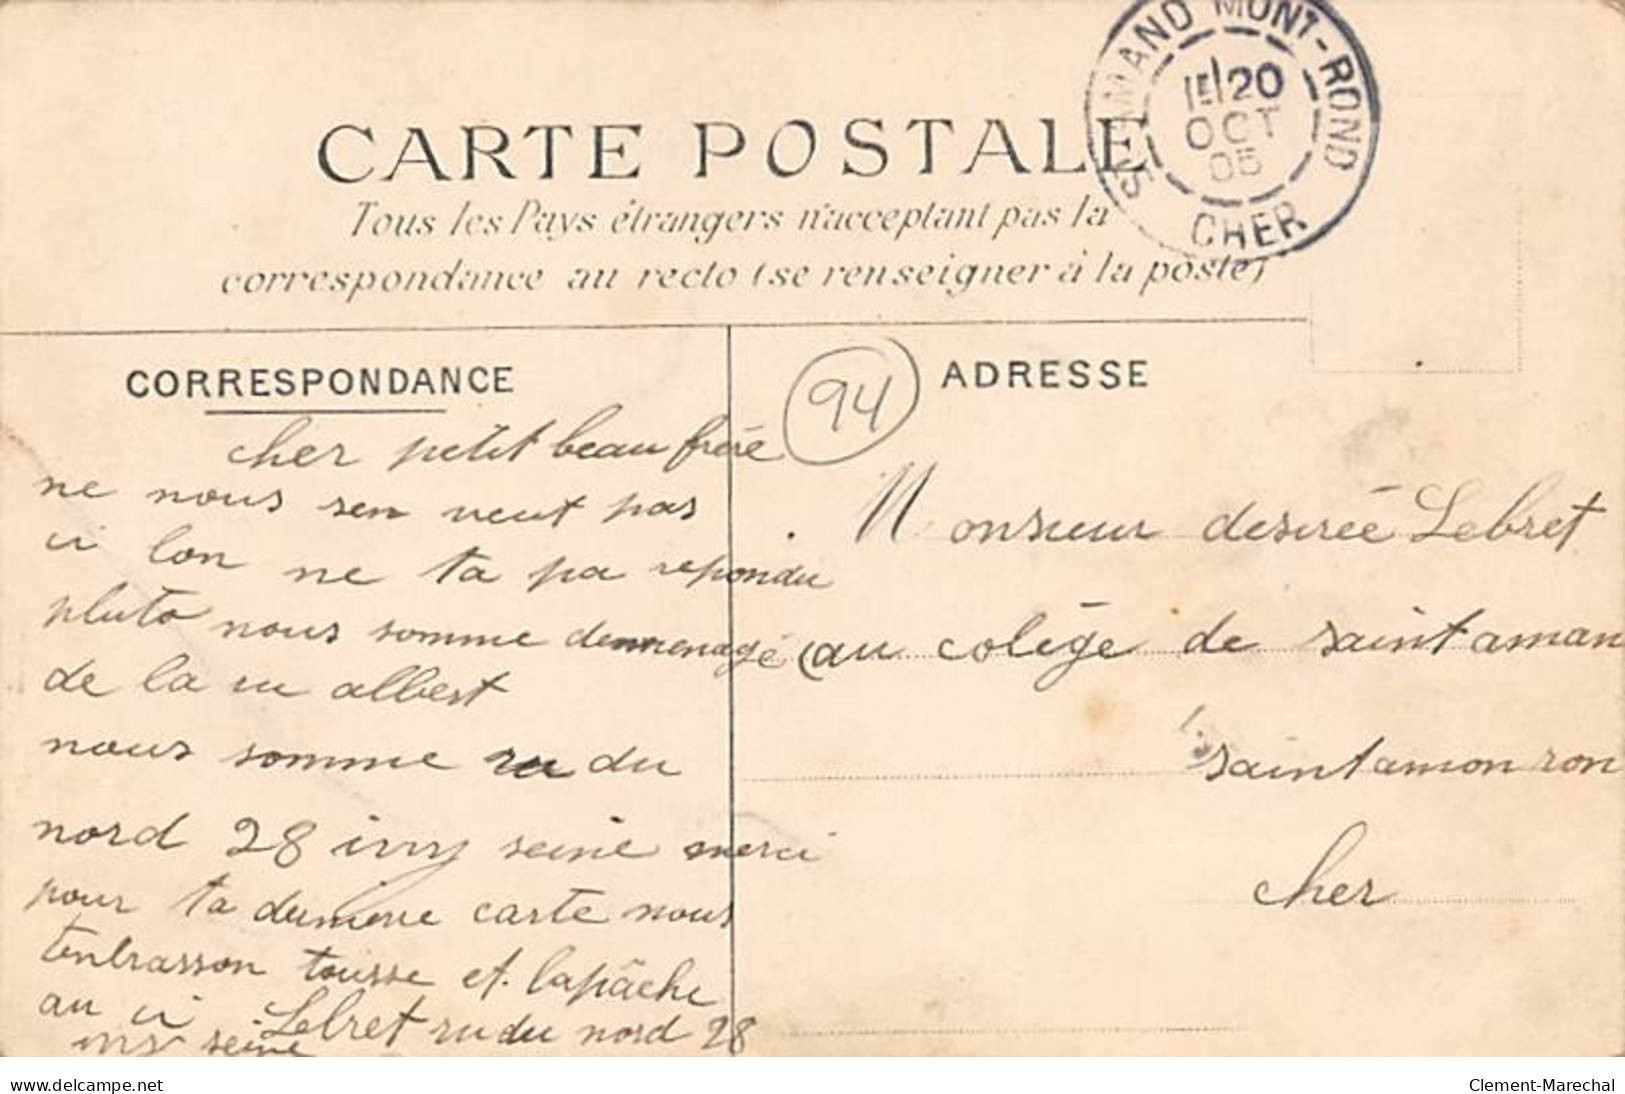 CARTE POSTALE
Tous les Pays étrangers n'acceptant pas la
correspondance au recto (se renseigner à la poste)
ST AMAND MONT-ROND
20
OCT
05
CHER
CORRESPONDANCE
94
ADRESSE
cher petit beau frère
ne nous sen veut pas
si lon ne ta pa repondu
pluto nous somme demmenagé
de la ru albert
nous somme ru du
nord 28 ivry seine merci
pour ta dernière carte nous
tenbrasson tousse et lapâche
au si Lebret ru du nord 28
ivry seine
Monsieur desirée Lebret
au colège de saint aman
saintamon ron
cher
www.delcampe.net
Clement-Marechal